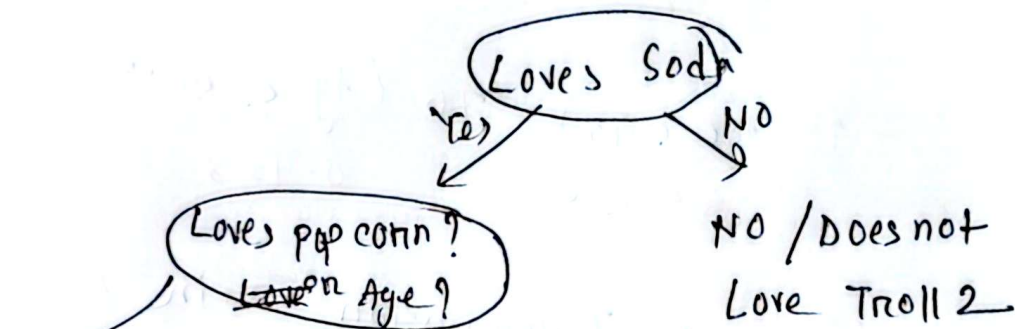 Loves Soda
Yes
NO
Loves popcorn?
or Age?
NO / Does not
Love Troll 2